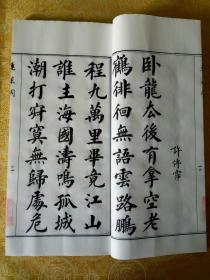 許傳霈
臥龍去後有拏空老
鶴徘徊無語雲路鵬
程九萬里畢竟江山
誰主海國濤鳴孤城
潮打寂寞無歸處危